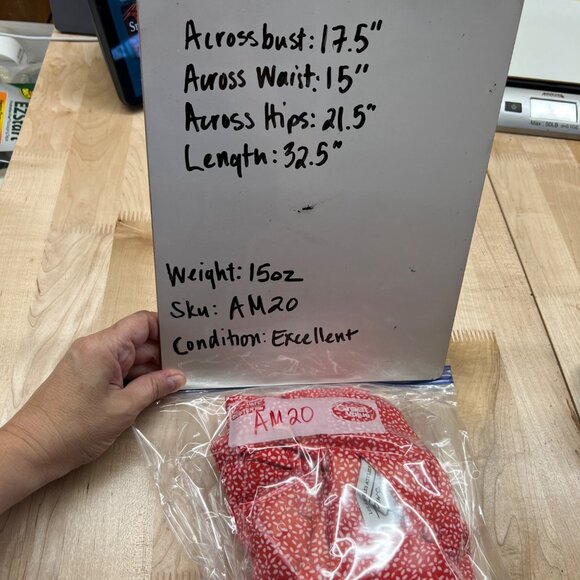 Across bust: 17.5"
Across Waist: 15"
Across Hips: 21.5"
Length: 32.5"
Weight: 15oz
Sku: AM20
Condition: Excellent
AM20
EZStart
Max: 50LB